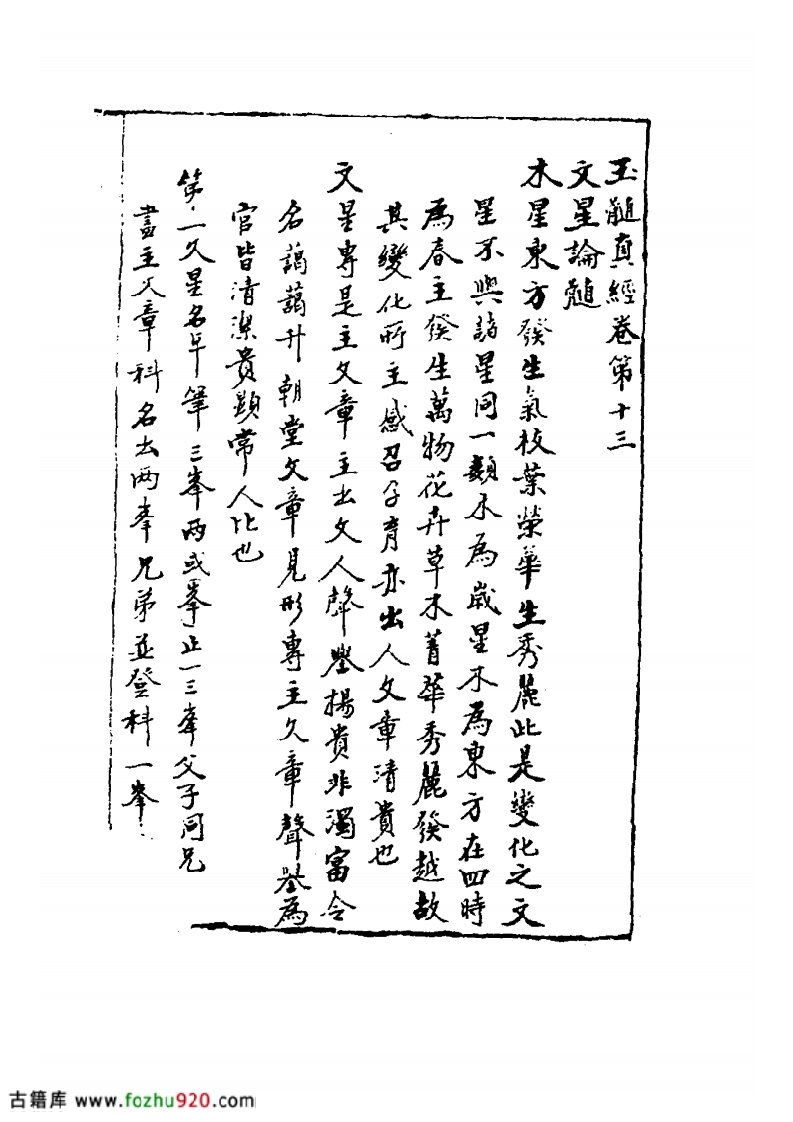 玉髓真經卷第十三
文星論髓
木星東方發生氣枝葉榮華生秀麗此是變化之文
星不與諸星同一類木為歲星木為東方在四時
為春主發生萬物花卉草木菁華秀麗發越故
其變化所主感召孕育亦出人文章清貴也
文星專是主文章主出文人聲譽揚貴非濁富令
名藹藹升朝堂文章見形專主文章聲譽為
官皆清潔貴顯常人比也
第一文星名卓筆三峯兩或峯止一三峯父子同兄
盡主文章科名出兩峯兄弟並登科一峯
古籍库 www.fozhu920.com